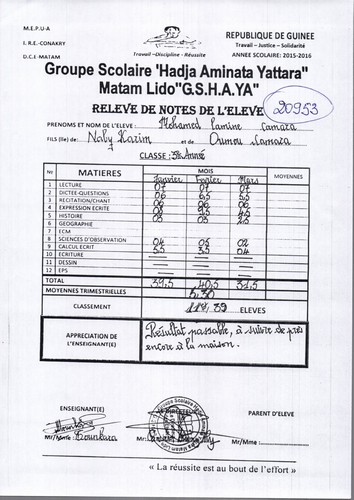 M.E.P.U-A
REPUBLIQUE DE GUINEE
I.R.E-CONAKRY
Travail – Justice – Solidarité
D.C.E-MATAM
Travail –Discipline - Réussite
ANNEE SCOLAIRE: 2015-2016
Groupe Scolaire "Hadja Aminata Yattara"
Matam Lido"G.S.H.A.YA"
RELEVE DE NOTES DE L'ELEVE
20953
PRENOMS ET NOM DE L'ELEVE : Mohamed Lamine Camara
FILS (lle) de: Naby Karim et de Oumou Camara
CLASSE : 5è Année
N° MATIERES MOIS MOYENNES
Janvier Février Mars
1 LECTURE 07 07 07
2 DICTEE-QUESTIONS 06 6,5 5,5
3 RECITATION/CHANT
4 EXPRESSION ECRITE
5 HISTOIRE
6 GEOGRAPHIE
7 ECM
8 SCIENCES D'OBSERVATION 04 05 02
9 CALCUL ECRIT 5,5 3,5 04
10 ECRITURE
11 DESSIN
12 EPS
TOTAL 39,5 40,5 31,5
MOYENNES TRIMESTRIELLES 5,30
CLASSEMENT 39 ELEVES
APPRECIATION DE L'ENSEIGNANT(E)
Résultat passable, à suivre de près
encore à la maison.
ENSEIGNANT(E) PARENT D'ELEVE
Mr/Mme : Kourouma
Mr/Mme :
« La réussite est au bout de l'effort »